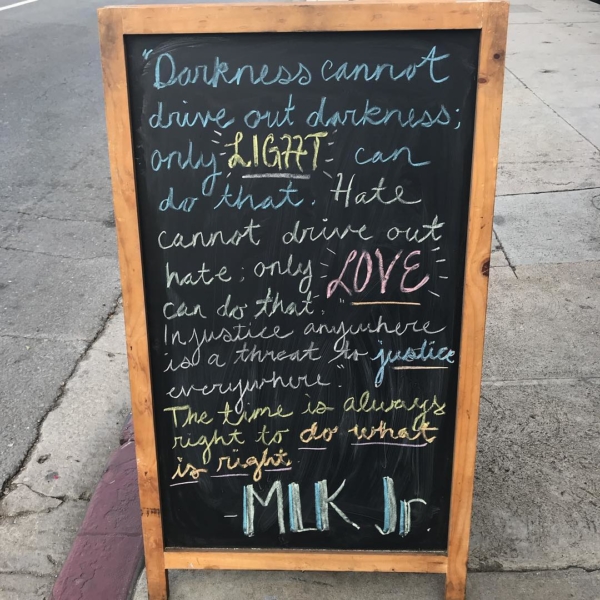 "Darkness cannot
drive out darkness;
only LIGHT can
do that. Hate
cannot drive out
hate; only LOVE
can do that."
Injustice anywhere
is a threat to justice
everywhere."
The time is always
right to do what
is right.
-MLK Jr.